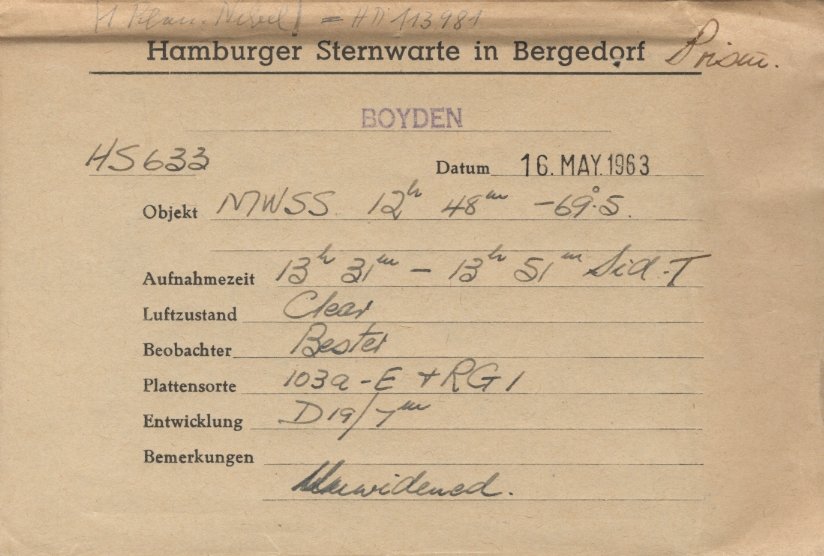 [1 Plan. Nebel] = HD 113981
Hamburger Sternwarte in Bergedorf Prism.
BOYDEN
HS 633 Datum 16. MAY. 1963
Objekt MWSS 12h 48m -69°.5.
Aufnahmezeit 13h 31m - 13h 51m Sid. T
Luftzustand Clear
Beobachter Bester
Plattensorte 103a-E + RG 1
Entwicklung D19/7m
Bemerkungen
Unwidened.